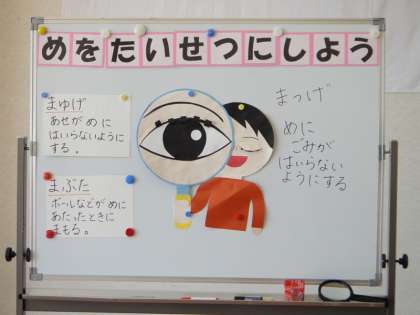 めをたいせつにしよう
まゆげ
あせが めに
はいらないように
する。
まぶた
ボールなどが めに
あたったときに
まもる。
まつげ
めに
ごみが
はいらない
ようにする